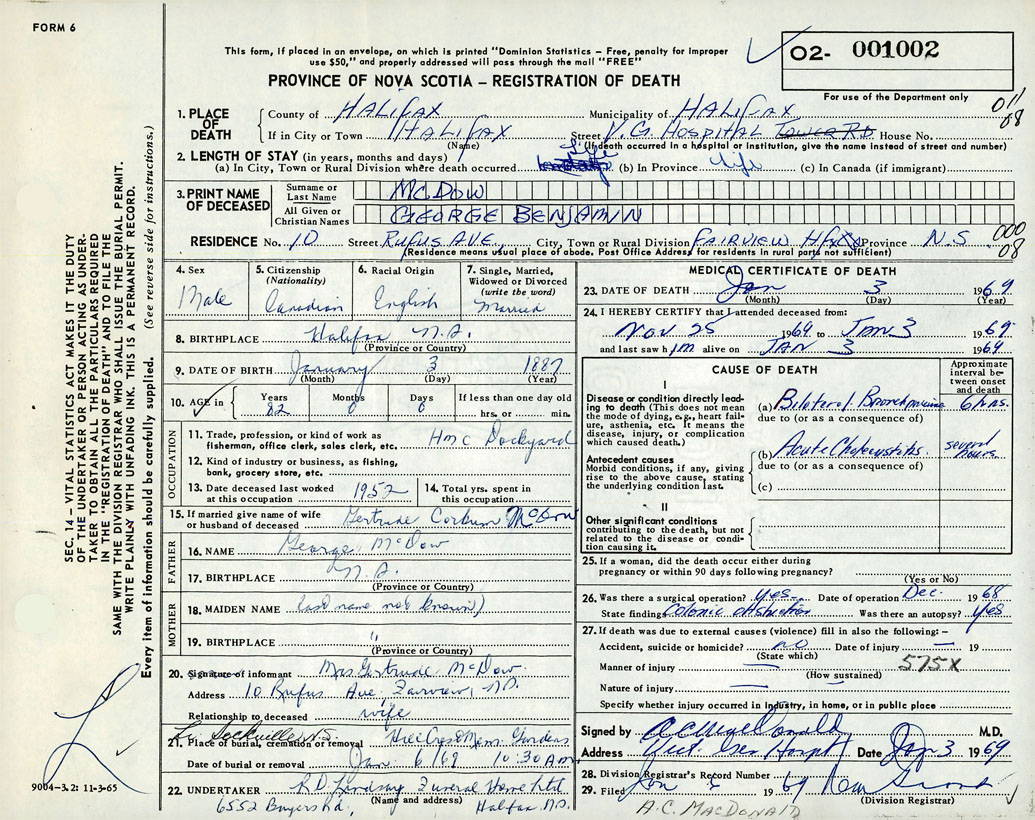 FORM 6
This form, if placed in an envelope, on which is printed "Dominion Statistics – Free, penalty for improper
use $50," and properly addressed will pass through the mail "FREE"
O2- 001002
For use of the Department only
PROVINCE OF NOVA SCOTIA – REGISTRATION OF DEATH
011
08
1. PLACE OF DEATH
County of HALIFAX Municipality of HALIFAX
If in City or Town HALIFAX Street V.G. HOSPITAL TOWER RD House No.
(Name) (If death occurred in a hospital or institution, give the name instead of street and number)
2. LENGTH OF STAY (in years, months and days)
(a) In City, Town or Rural Division where death occurred Life (b) In Province life (c) In Canada (if immigrant)
3. PRINT NAME OF DECEASED
Surname or Last Name MCDOW
All Given or Christian Names GEORGE BENJAMIN
000
08
RESIDENCE No. 10 Street RUFUS AVE, City, Town or Rural Division FAIRVIEW Hfx Province N.S.
(Residence means usual place of abode. Post Office Address for residents in rural parts not sufficient)
4. Sex
Male
5. Citizenship
(Nationality)
Canadian
6. Racial Origin
English
7. Single, Married,
Widowed or Divorced
(write the word)
Married
8. BIRTHPLACE Halifax N.S.
(Province or Country)
9. DATE OF BIRTH January 3 1887
(Month) (Day) (Year)
10. AGE in
Years Months Days If less than one day old
82 0 0 hrs. or min.
OCCUPATION
11. Trade, profession, or kind of work as
fisherman, office clerk, sales clerk, etc. HMC Dockyard
12. Kind of industry or business, as fishing,
bank, grocery store, etc.
13. Date deceased last worked
at this occupation 1952
14. Total yrs. spent in
this occupation
15. If married give name of wife
or husband of deceased Gertrude McDow
FATHER
16. NAME George McDow
17. BIRTHPLACE N.S.
(Province or Country)
MOTHER
18. MAIDEN NAME (last name not known)
19. BIRTHPLACE "
(Province or Country)
20. Signature of informant Mrs Gertrude McDow
Address 10 Rufus Ave, Fairview, N.S.
Relationship to deceased wife
Sackville N.S.
21. Place of burial, cremation or removal Hill Crest Mem. Gardens
Date of burial or removal Jan. 6/69 10:30 AM
22. UNDERTAKER R D Lindsay Funeral Home Ltd
(Name and address)
6552 Bayers Rd, Halifax, N.S.
MEDICAL CERTIFICATE OF DEATH
23. DATE OF DEATH Jan 3 1969
(Month) (Day) (Year)
24. I HEREBY CERTIFY that I attended deceased from:
Nov. 25 1969 to JAN 3 1969
and last saw him alive on JAN 3 1969
CAUSE OF DEATH
Approximate
interval be-
tween onset
and death
I
Disease or condition directly lead-
ing to death (This does not mean
the mode of dying, e.g., heart fail-
ure, asthenia, etc. It means the
disease, injury, or complication
which caused death.)
(a) Bilateral Bronchopneumonia 6 hrs.
due to (or as a consequence of)
Antecedent causes
Morbid conditions, if any, giving
rise to the above cause, stating
the underlying condition last.
(b) Acute Cholecystitis several hours.
due to (or as a consequence of)
(c)
II
Other significant conditions
contributing to the death, but not
related to the disease or condi-
tion causing it.
25. If a woman, did the death occur either during
pregnancy or within 90 days following pregnancy?
(Yes or No)
26. Was there a surgical operation? yes Date of operation Dec. 1968
State findings Colonic obstruction Was there an autopsy? yes
27. If death was due to external causes (violence) fill in also the following: –
Accident, suicide or homicide? no Date of injury — 19
(State which)
575X
Manner of injury —
(How sustained)
Nature of injury — —
Specify whether injury occurred in industry, in home, or in public place
Signed by A C MacDonald M.D.
Address Vict. Gen Hospt Date Jan 3 1969
28. Division Registrar's Record Number
29. Filed Jan 1969
(Division Registrar)
A.C. MACDONALD
9004-3.2: 11-3-65
SEC. 14 – VITAL STATISTICS ACT MAKES IT THE DUTY
OF THE UNDERTAKER OR PERSON ACTING AS UNDER-
TAKER TO OBTAIN ALL THE PARTICULARS REQUIRED
IN THE "REGISTRATION OF DEATH" AND TO FILE THE
SAME WITH THE DIVISION REGISTRAR WHO SHALL ISSUE THE BURIAL PERMIT.
WRITE PLAINLY WITH UNFADING INK. THIS IS A PERMANENT RECORD.
Every item of information should be carefully supplied. (See reverse side for instructions.)